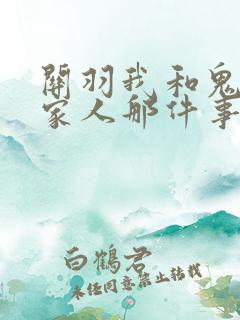 關羽我和鬼
家人那件事
白鶴君
未任同意禁止转载